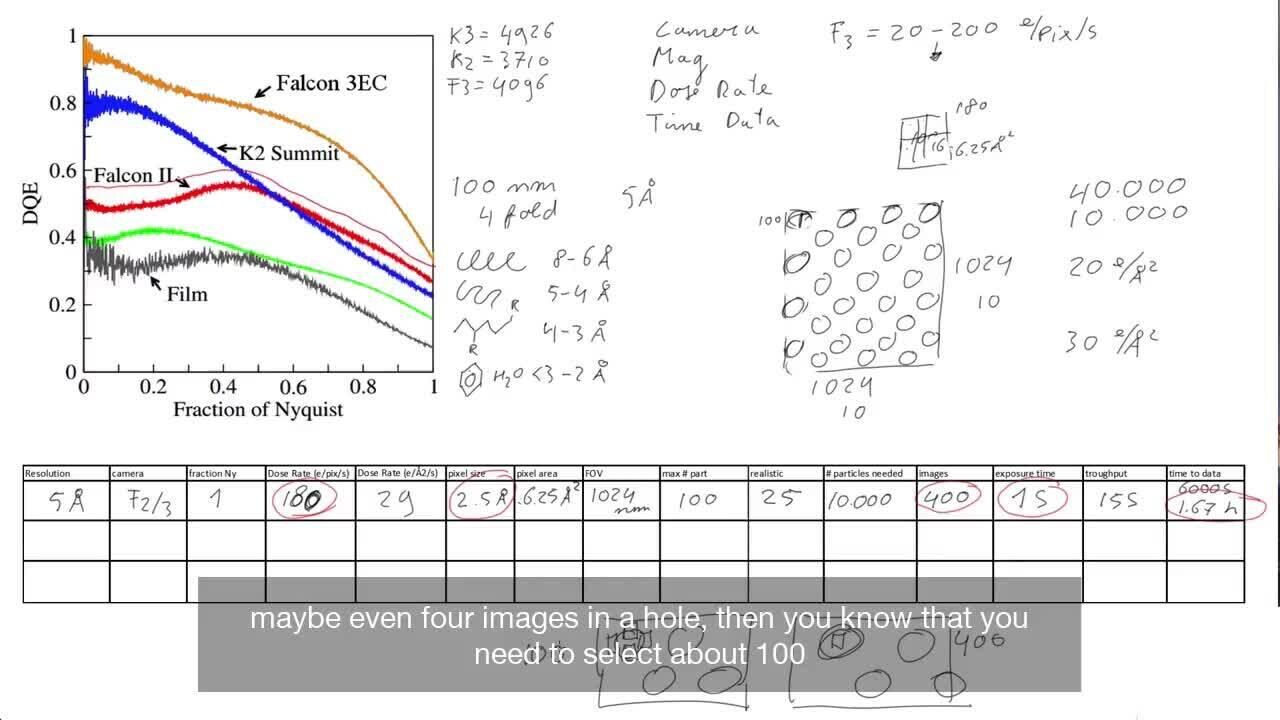 1
0.8
0.6
0.4
0.2
0
DQE
Falcon 3EC
K2 Summit
Falcon II
Film
0 0.2 0.4 0.6 0.8 1
Fraction of Nyquist
K3 = 4926
K2 = 3710
F3 = 4096
Camera
Mag
Dose Rate
Time Data
F3 = 20 - 200 e/pix/s
180
16
6.25Å²
100 nm
4 fold
5Å
8-6Å
R
5-4 Å
R
4-3 Å
H2O <3-2 Å
100
1024
10
1024
10
40.000
10.000
20 e/Å²
30 e/Å²
Resolution camera fraction Ny Dose Rate (e/pix/s) Dose Rate (e/Å2/s) pixel size pixel area FOV max # part realistic # particles needed images exposure time troughput time to data
5Å F2/3 1 180 29 2.5Å 6.25Å² 1024 nm 100 25 10.000 400 1s 15s 6000s 1.67 h
maybe even four images in a hole, then you know that you
need to select about 100
100
400